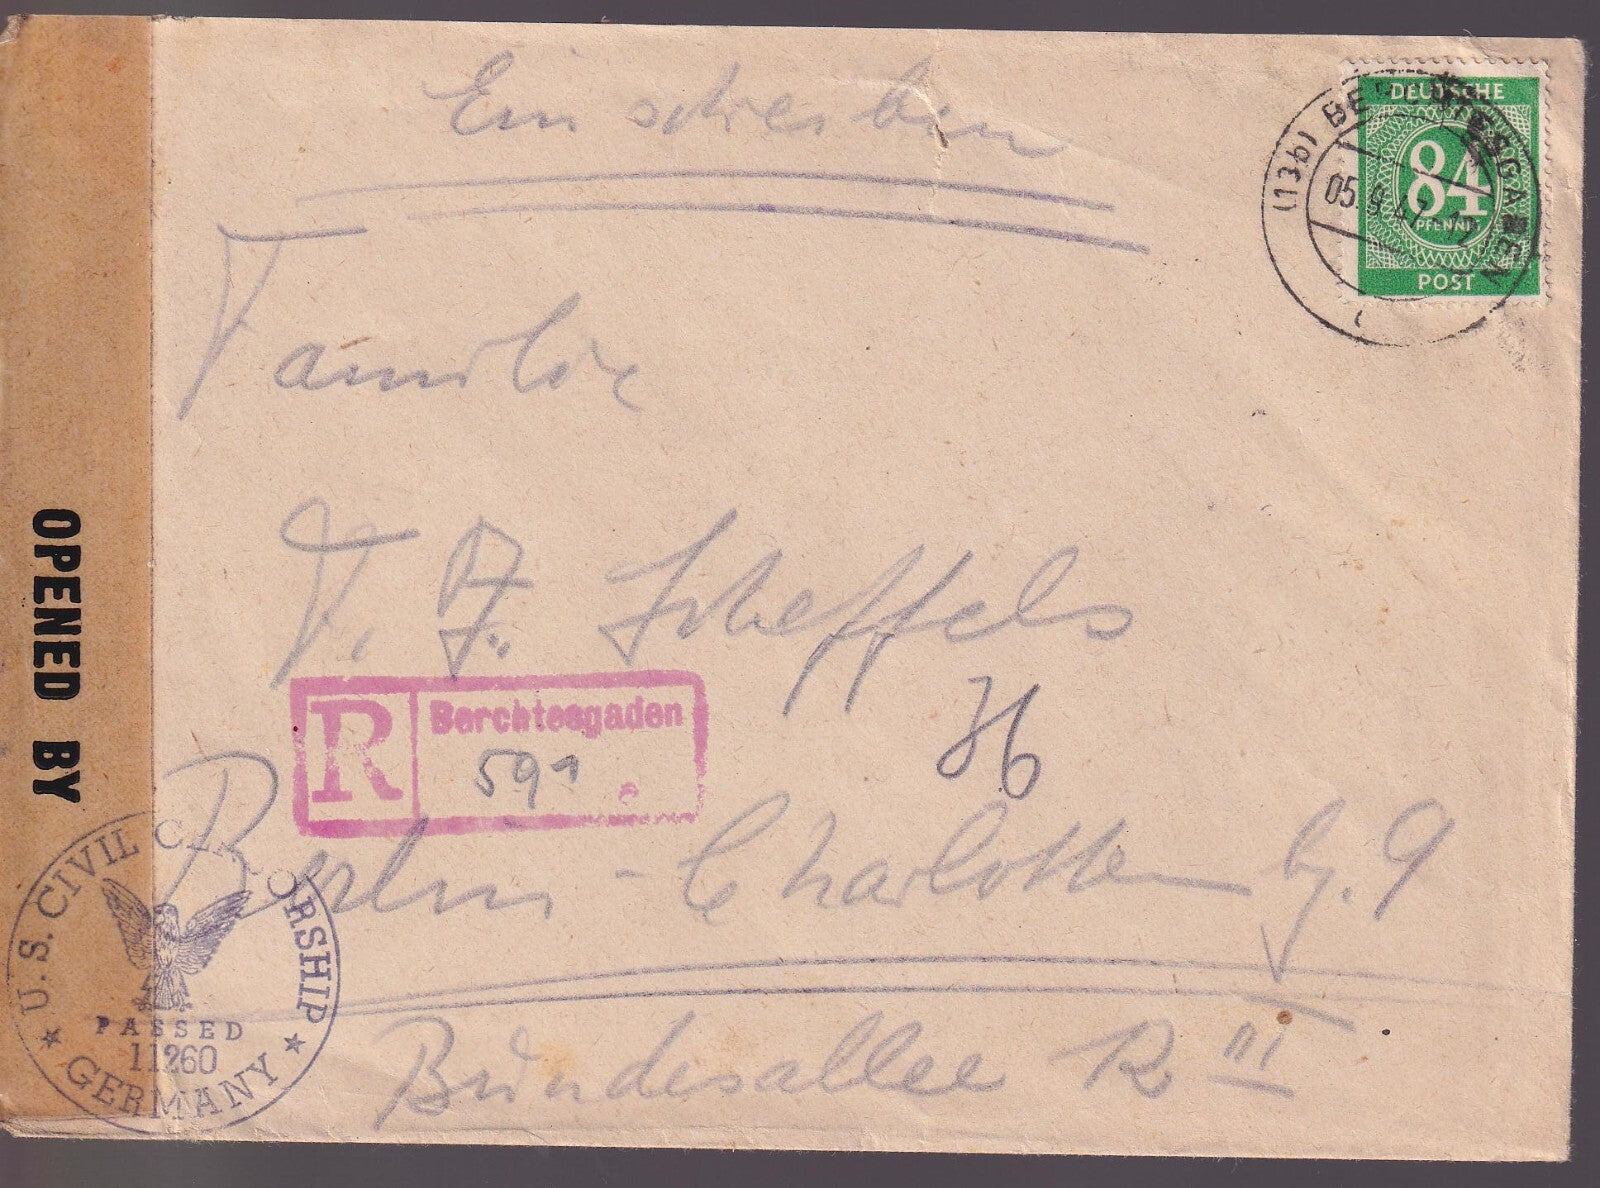 Einschreiben
(13b) BERCHTESGADEN
05.9.47.12
DEUTSCHE
84
PFENNIG
POST
Familie
F. J. Scheffels
R Berchtesgaden
591
Berlin-Charlottenbg. 9
Bundesallee R III
OPENED BY
U.S. CIVIL CENSORSHIP
PASSED
11260
GERMANY